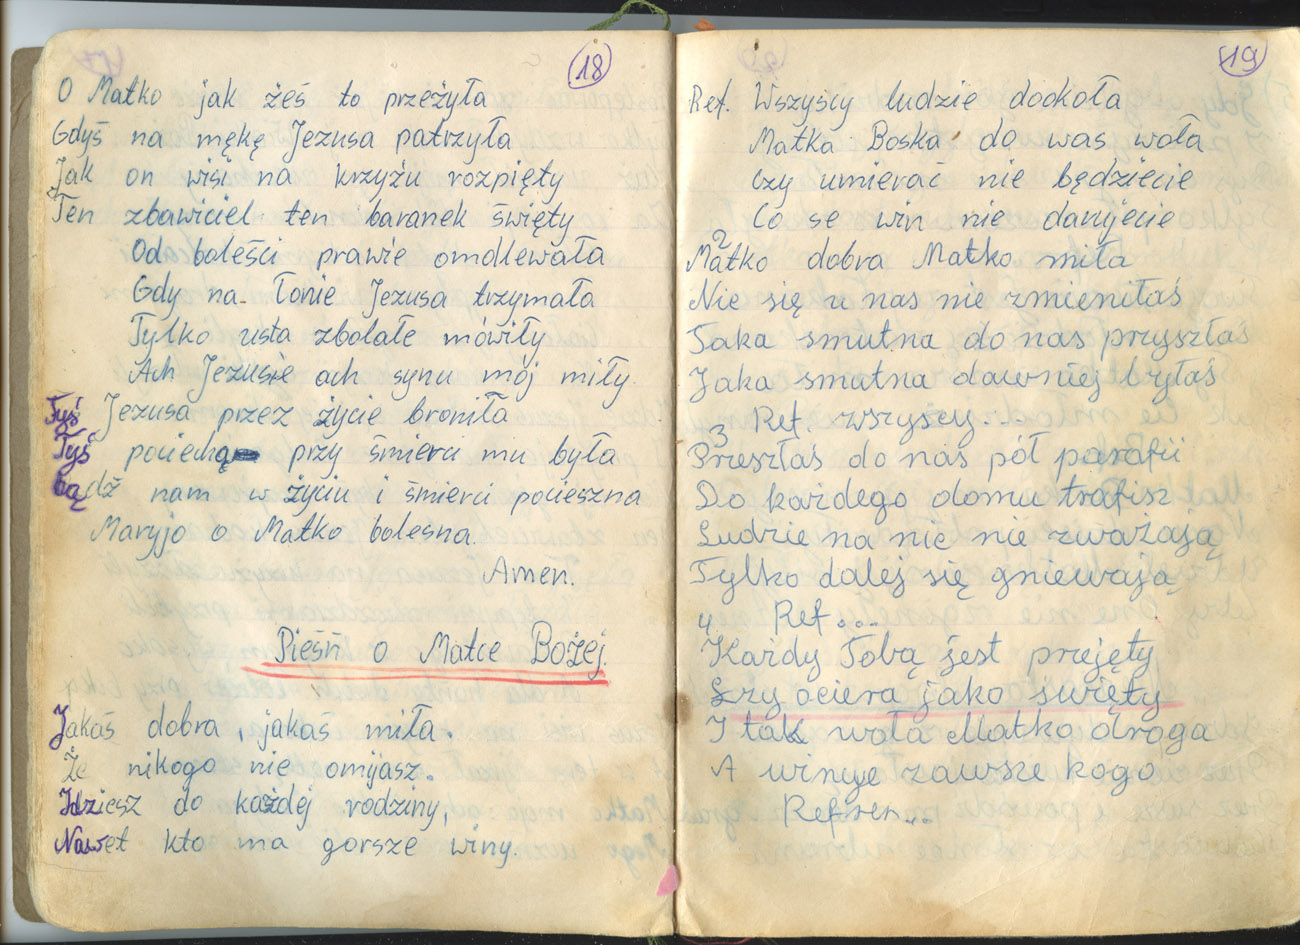 18
O Matko jak żeś to przeżyła
Gdyś na mękę Jezusa patrzyła
Jak on wisi na krzyżu rozpięty
Ten zbawiciel ten baranek święty
Od boleści prawie omdlewała
Gdy na łonie Jezusa trzymała
Tylko usta zbolałe mówiły
Ach Jezusie ach synu mój miły
Tyś Jezusa przez życie broniła
Tyś pociechą przy śmierci mu była
bądź nam w życiu i śmierci pocieszna
Maryjo o Matko bolesna.
Amen.
Pieśń o Matce Bożej.
Jakaś dobra, jakaś miła.
Że nikogo nie omijasz.
Idziesz do każdej rodziny,
Nawet kto ma gorsze winy.
19
Ref. Wszyscy ludzie dookoła
Matka Boska do was woła
Czy umierać nie będziecie
Co se win nie darujecie
2
Matko dobra Matko miła
Nie się u nas nie zmieniłaś
Taka smutna do nas przyszłaś
Jaka smutna dawniej byłaś
Ref. wszyscy...
3
Przeszłaś do nas pół parafii
Do każdego domu trafisz
Ludzie na nic nie zważają
Tylko dalej się gniewają
4 Ref....
Każdy Tobą jest przejęty
Łzy ociera jako święty
I tak woła Matka droga
A winuje zawsze kogo
Refren...